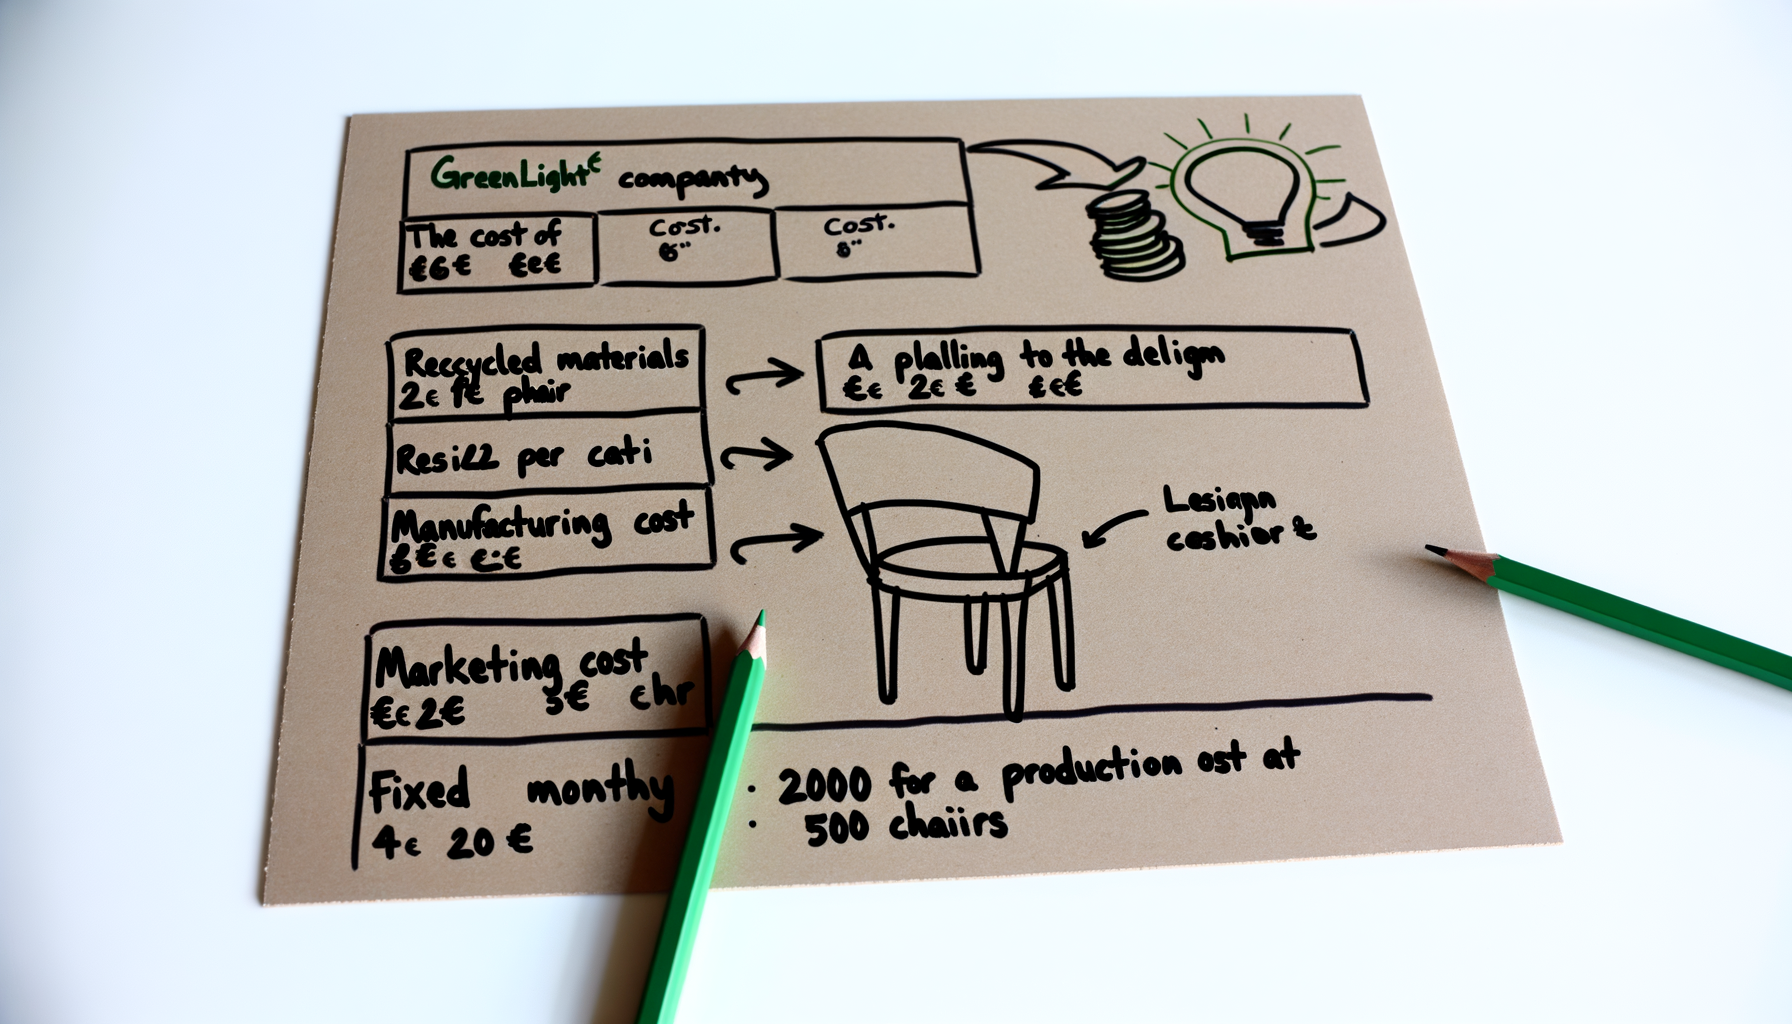 GreenLight€ companty
The cost of
€6€ €e€
Cost.
6"
Cost.
8"
Reccycled materials
2€ 1€ phair
A plalling to the deligm
€€ 2€ € €€€
Resi22 per cati
Manufacturing cost
6€€ €:€
Lesiapn
ceshior
Marketing cost
€€2€ 3€ chr
Fixed monthy
4€ 20 €
· 2000 for a production ost at
· 500 chaiirs